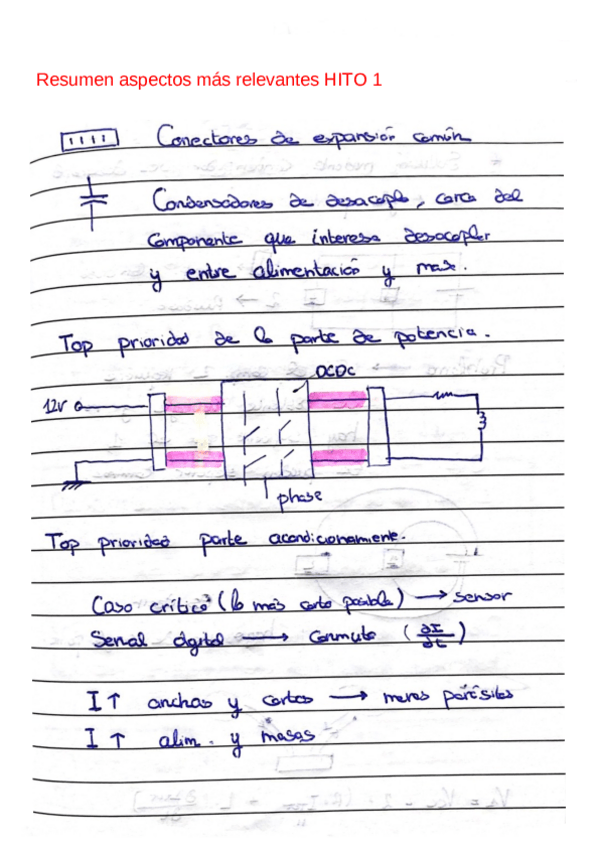 Resumen aspectos más relevantes HITO 1
Conectores de expansión común
Condensadores de desacoplo, cerca del
componente que interesa desacoplar
y entre alimentación y masa.
Top prioridad de la parte de potencia.
DCDC
12V
phase
Top prioridad parte acondicionamiento.
Caso crítico (lo más corto posible) → sensor
Señal digital → conmuta (∂I/∂t)
I ↑ anchas y cortas → menos parásitos
I ↑ alim. y masas